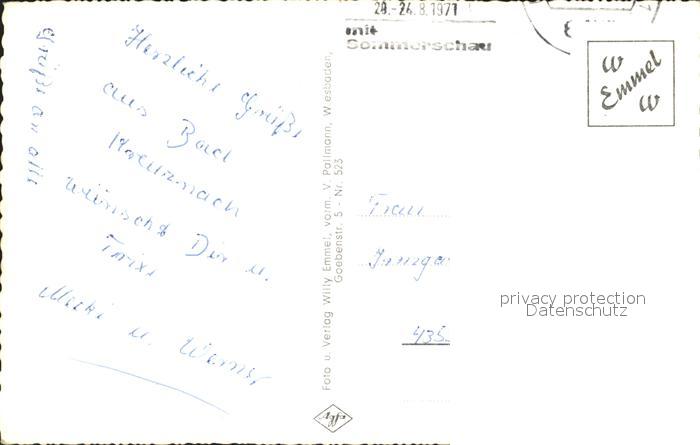 20.-24.8.1971
mit
Sommerschau
W
Emmel
W
Herzliche Grüße
aus Bad
Kreuznach
wünscht Dir u.
Trixi
u. Werner
Grüße an alle
Foto u. Verlag Willy Emmel, vorm. V. Pallmann, Wiesbaden,
Goebenstr. 5 - Nr. 523
Frau
435
privacy protection
Datenschutz